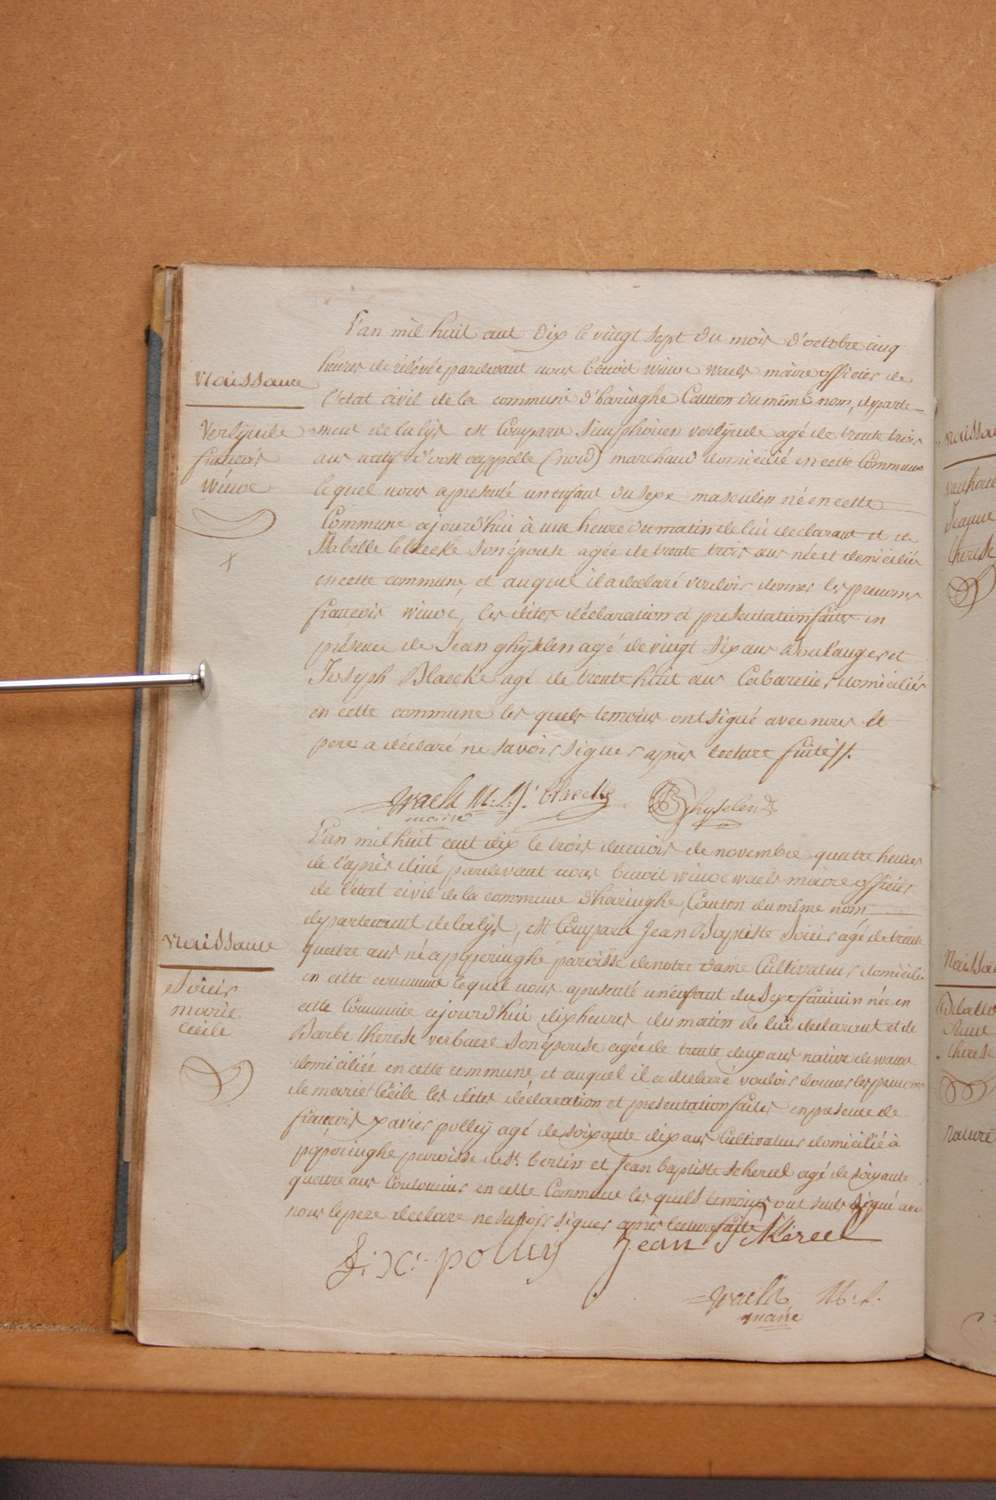 L'an mil huit cent dix le vingt sept du mois d'octobre cinq
heures de relevée pardevant nous benoit winoc waels maire officier de
l'etat civil de la commune d'haringhe Canton du même nom, departe-
ment de la lys est Comparu Simphorien verlynde agé de trente trois
ans natif d'oost cappelle (nord) marchand domicilié en cette Commune
lequel nous a presenté un enfant du sexe masculin né en cette
Commune ajourd'hui à une heure du matin de lui declarant et de
Isabelle son épouse agée de trente trois ans née et domiciliée
en cette commune, et auquel il a declaré vouloir donner les prenoms
francois winoc, les dites déclaration et presentation faites en
présence de Jean ghyselen agé de vingt six ans Boulanger et
Joseph Blaeckt agé de trente huit ans Cabaretier domiciliés
en cette commune les quels temoins ont signé avec nous le
pere a déclaré ne savoir signer après lecture faite
Naissance
Verlynde
francois
winoc
waels M. J. Ghyselen
maire
L'an mil huit cent dix le trois du mois de novembre quatre heures
de l'après diné pardevant nous benoit winoc waels maire officier
de l'état civil de la commune d'haringhe, Canton du même nom
departement de la lys, est Comparu Jean Baptiste Soris agé de trente
quatre ans né a poperinghe paroisse de notre dame Cultivateur domicilié
en cette commune lequel nous a presenté un enfant du Sexe feminin née en
cette Commune ajourd'hui dix heures du matin de lui declarant et de
Barbe therese verbaere son épouse agée de trente deux ans native de
domiciliée en cette commune, et auquel il a declaré vouloir donner les prenoms
de marie Cecile les dites déclaration et presentation faites en presence de
francois xavier polley agé de soixante dix ans Cultivateur domicilié à
poperinghe paroisse de St. bertin et Jean baptiste agé de soixante
quatre ans en cette Commune les quels temoins ont seuls signé avec
nous le pere declare ne savoir signer apres lecture faite
Naissance
Soris
marie
Cecile
f: X: polley Jean
waels M. J.
maire
Naissa
Jeanne
therese
Naissa
therese